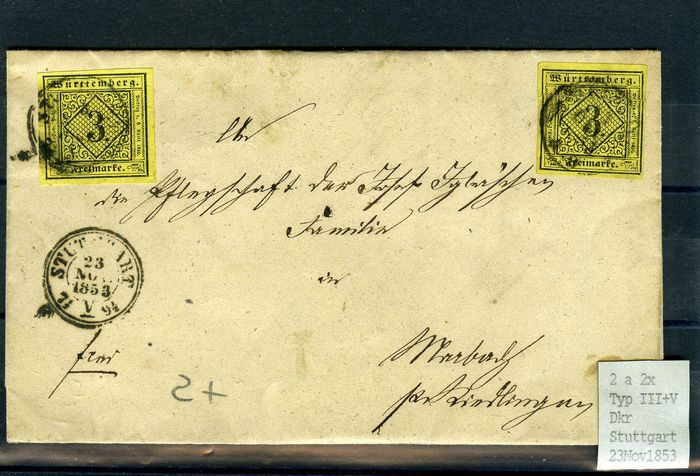 Württemberg.
3
Freimarke.
Württemberg.
3
Freimarke.
An
die Pflegschaft der Josef
Familie
in
STUTTGART
23
NOV.
1853
V
frei
Marbach
Riedlingen
2+
2 a 2x
Typ III+V
Dkr
Stuttgart
23Nov1853